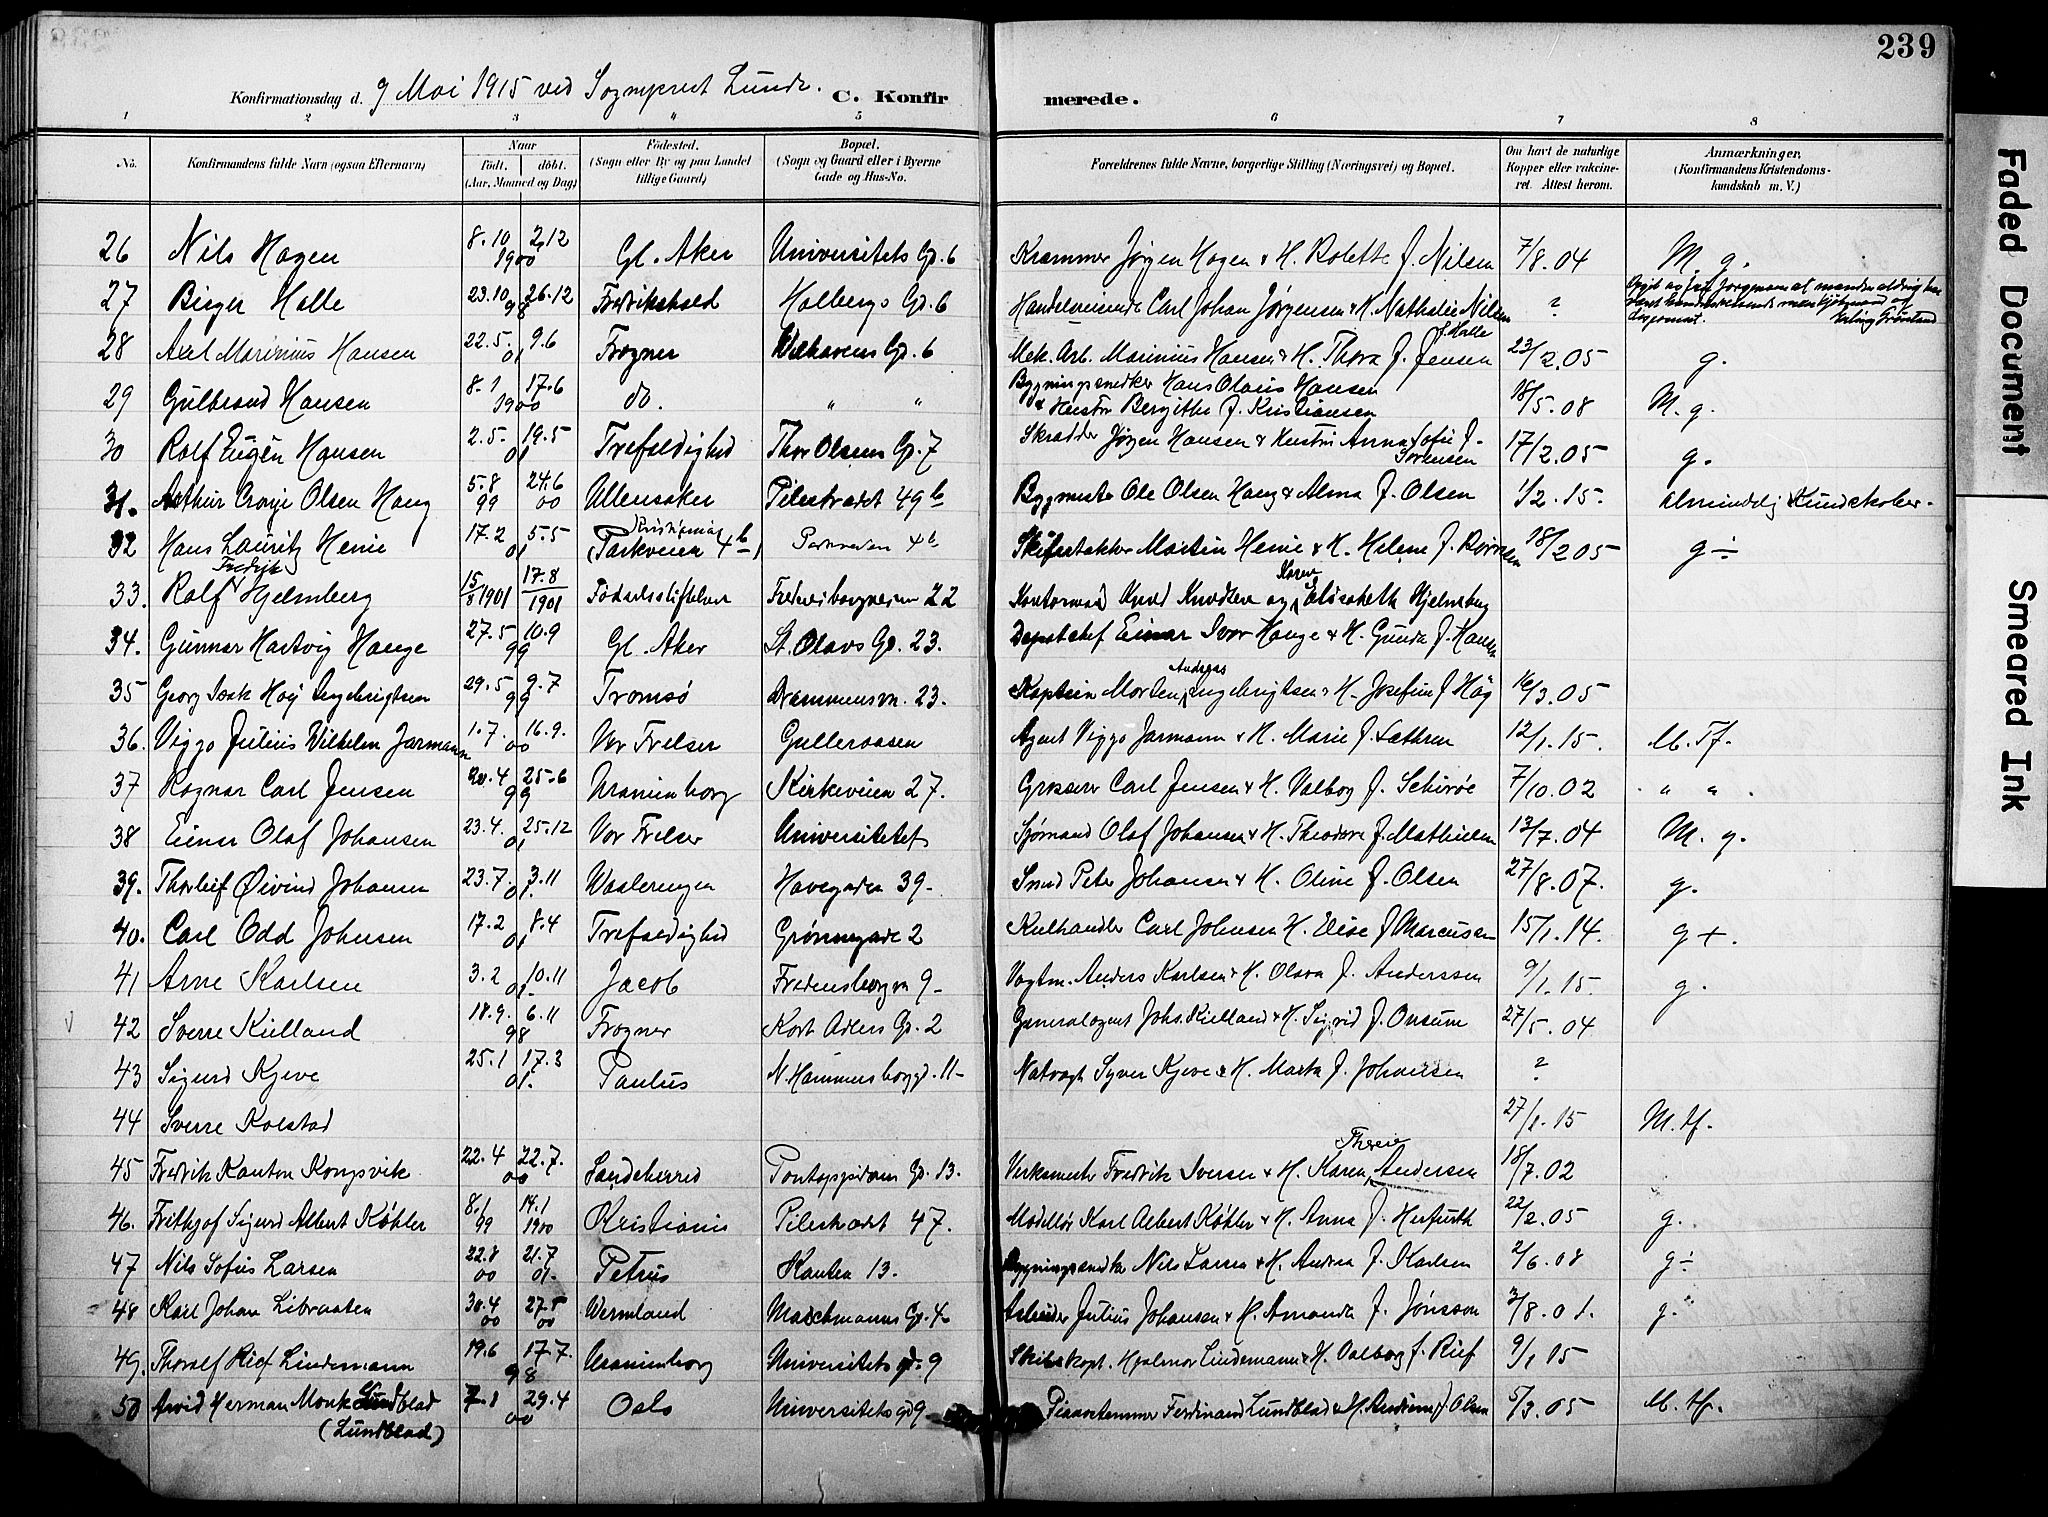 239
Konfirmationsdag d. 9 Mai 1915 ved Sogneprest Lunde. C. Konfirmerede.
1 2 3 " 5 6 7 8
No. Konfirmandens fulde Navn (ogsaa Efternavn) Naar født. døbt. (Aar, Maaned og Dag) Fødested. (Sogn eller By og paa Landet tillige Gaard) Bopæl. (Sogn og Gaard eller i Byerne Gade og Hus-No. Forældrenes fulde Navne, borgerlige Stilling (Næringsvei) og Bopæl. Om havt de naturlige Kopper eller vakcineret. Attest herom. Anmærkninger. (Konfirmandens Kristendomskundskab m. V.)
26 Nils Hagen 8.10 2.12 1900 Gl. Aker Universitets Gd. 6 Krammer Jørgen Hagen & H. Bolette f. Nilsen 7/8.04 M. g.
27 Birger Halle 23.10 26.12 98 Fredrikshald Holbergs Gd. 6 Handelsreisende Carl Johan Jørgensen & H. Nathalie Nilsen f. Halle ?
28 Axel Marinius Hansen 22.5. 9.6 01 Frogner Welhavens Gd. 6 Mek. Arb. Marinius Hansen & H. Thora f. Jensen 23/2.05 g.
29 Gulbrand Hansen 8.1 17.6 1900 do. " " Bygningssnedker Hans Olaus Hansen & Hustru Bergithe f. Kristiansen 18/5.08 M. g.
30 Rolf Eugen Hansen 2.5. 19.5 01 Trefoldighed Thor Olsens Gd. 7 Skrædder Jørgen Hansen & Hustru Anna Sofie f. Sørensen 17/2.05 g.
31. Arthur Cronje Olsen Haug 5.8 99 24.6 00 Ullensaker Pilestrædet 49b Bygmester Ole Olsen Haug & Alma f. Olsen 1/2.15. Almindelig Kundskaber.
32 Hans Lauritz Henie 17.2 5.5 01 Kristiania (Parkveien 4b) Parkveien 4b Martin Henie & H. Helene f. 18/2 05 g÷
33. Rolf Fredrik Hjelmberg 15/8 1901 17.8 1901 Fødselsstiftelsen Fredensborgveien 22 Knud Knudsen og Karen Elisabeth Hjelmberg
34. Gunnar Hartvig Hauge 27.5 10.9 99 Gl. Aker St. Olavs Gd. 23. Depotchef Einar Ivar Hauge & H. Gunda f. Hansen
35 Georg Isak Høij Ingebrigtsen 29.5 9.7 99 Tromsø Drammensvn. 23. Kaptein Morten Andreas Ingebrigtsen & H. Josefine f. Høy 16/3.05
36. Viggo Julius Wilhelm Jarmann 1.7. 16.9. 00 Vor Frelser Gulleraasen Agent Viggo Jarmann & H. Marie f. Sæthren 12/1.15. M. Tf.
37 Ragnar Carl Jensen 20.4 25.6 99 Uranienborg Kirkeveien 27. Grosserer Carl Jensen & H. Valborg f. Schirøe 7/10.02 " " .
38 Einar Olaf Johansen 23.4. 25.12 01 Vor Frelser Universitetet Sjømand Olaf Johansen & H. Theodora f. Mathisen 13/7.04 M. g.
39. Thorleif Øivind Johansen 23.7. 3.11 01. Vaalerengen Havegaden 39. Smed Peter Johansen & H. Oline f. Olsen 27/8.07. g.
40. Carl Odd Johnsen 17.2 8.4 01 Trefoldighed Grønnegade 2 Kulhandler Carl Johnsen H. Elise f. Marcussen 15/1.14. g +.
41 Arne Karlsen 3.2 10.11 01 Jacob Fredensborgvn 9 Vogtm. Anders Karlsen & H. Olava f. Anderssen 9/1.15. g.
42 Sverre Kielland 18.9. 6.11 98 Frogner Kort Adlers Gd. 2 Generalagent Johs. Kielland & H. Sigrid f. Onsum 27/5.04
43 Sigurd Kjeve 25.1 17.3 01. Paulus N. Hammersborggd. 11 Natvagt Syver Kjeve & H. Marta f. Johnsen ?
44 Sverre Kolstad 27/1.15 M. tf.
45 Fredrik Kanton Kongsvik 22.4 22.7. 00 Sandeherred Pontoppidans Gd. 13. Verksmester Fredrik Iversen & H. Karen Therese Andersen 18/7.02
46. Frithjof Sigurd Albert Køhler 8.1 99 14.1 1900 Kristiania Pilestrædet 47. Modellør Karl Albert Køhler & H. Anna f. Herfurth 22/2.05 g.
47 Nils Sofus Larsen 22.8 00 21.7 01. Petrus Kanten 13. Bygningssnedker Nils Larsen & H. Andrea f. Karlsen 2/6.08 g÷
48 Karl Johan Libraaten 30.4 00 27.8 00 Wermland Maschmanns Gd. 4 Arbeider Julius Johansen & H. Amanda f. Jónsson 3/8.01. g.
49. Thoralf Rief Lindemann 19.6 17.7. 98 Uranienborg Universitets gd. 9 Skibskapt. Hjalmar Lindemann & H. Valborg f. Rief 9/1 15
50 Arvid Herman Monk Lundblad (Lundblad) 7.1 29.4 00 Oslo Universitetsgd 9 Pianostemmer Ferdinand Lundblad & H. f. Olsen 5/3.05 M. tf.
Faded Document
Smeared Ink